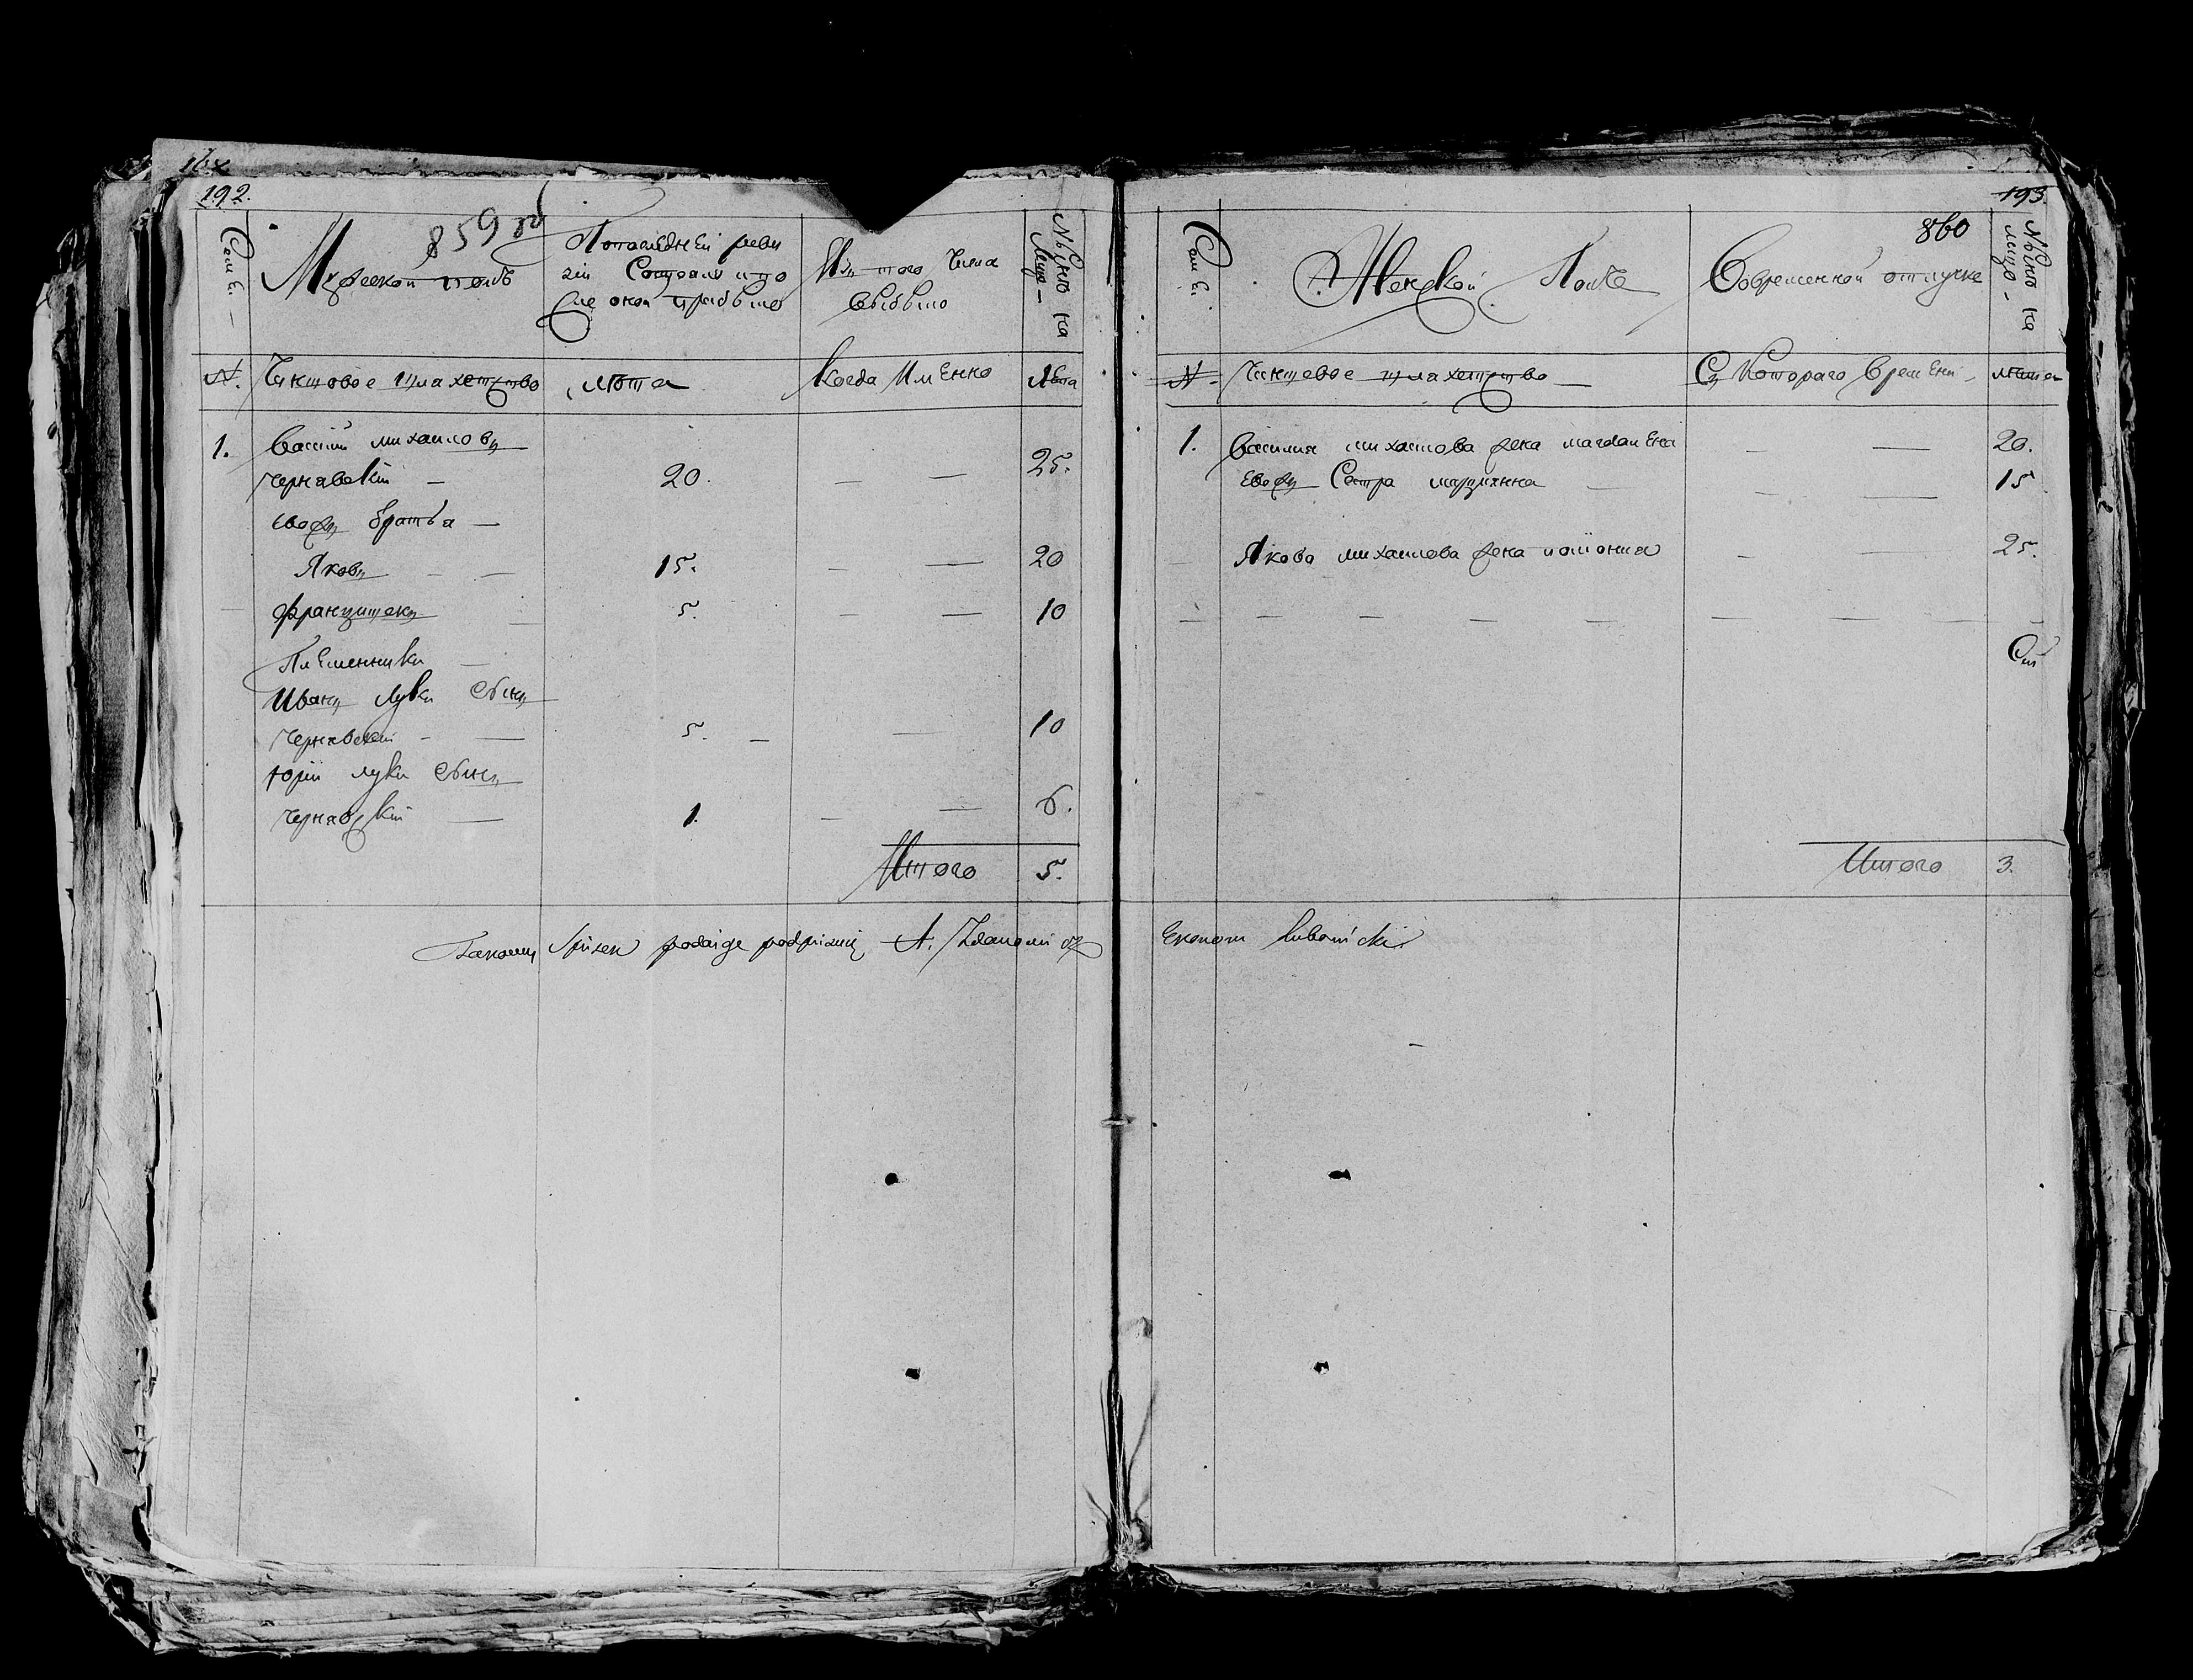 192.
859 об
Семьи
Мужеской полъ
По последней реви
зіи Состояло и по
сле оной прибыло
Изъ того Числа
выбыло
Ныне на
Лице
№. Чиншовое шляхетство лѣта Когда Именно Лѣта
1. Василій михаиловъ
Чернавскій — 20. — — 25.
Его жъ братья —
Яковъ — — 15. — — 20
Францишекъ 5. — — 10
Племенники —
Иванъ Луки сынъ
Чернавскій — 5. — — 10
Юрій луки сынъ
Чернавскій — 1. — — 6.
Итого 5.
podaige A.
193.
860
Семьи
Женской Полъ
Вовременной отлучке
Ныне на
лицо
№. Чиншевое шляхетство — Съ Котораго Времени лѣта
1. Василия михаилова жена магдалена — — 20.
Его жъ Сестра марцыянна — — 15
Якова михаилова жена — — 25.
Итого 3.
Ekonom